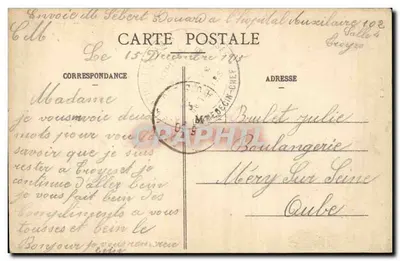 Envoie Mr Sebert Douard a l'hopital Auxilaire 102
Salle 4
Troyes
CM
CARTE POSTALE
Le 15 Décembre 191
CORRESPONDANCE
ADRESSE
MEDECIN-CHEF
CPAPHIL
Madame
je vous envoie deux
mots pour vous
savoir que je suis
rester a Troyes et je
continue d'aller bien
je vous fait bien des
compliments a vous
tousses et bien le
Bonjour je vous
Brulet julie
Boulangerie
Méry Sur Seine
Aube